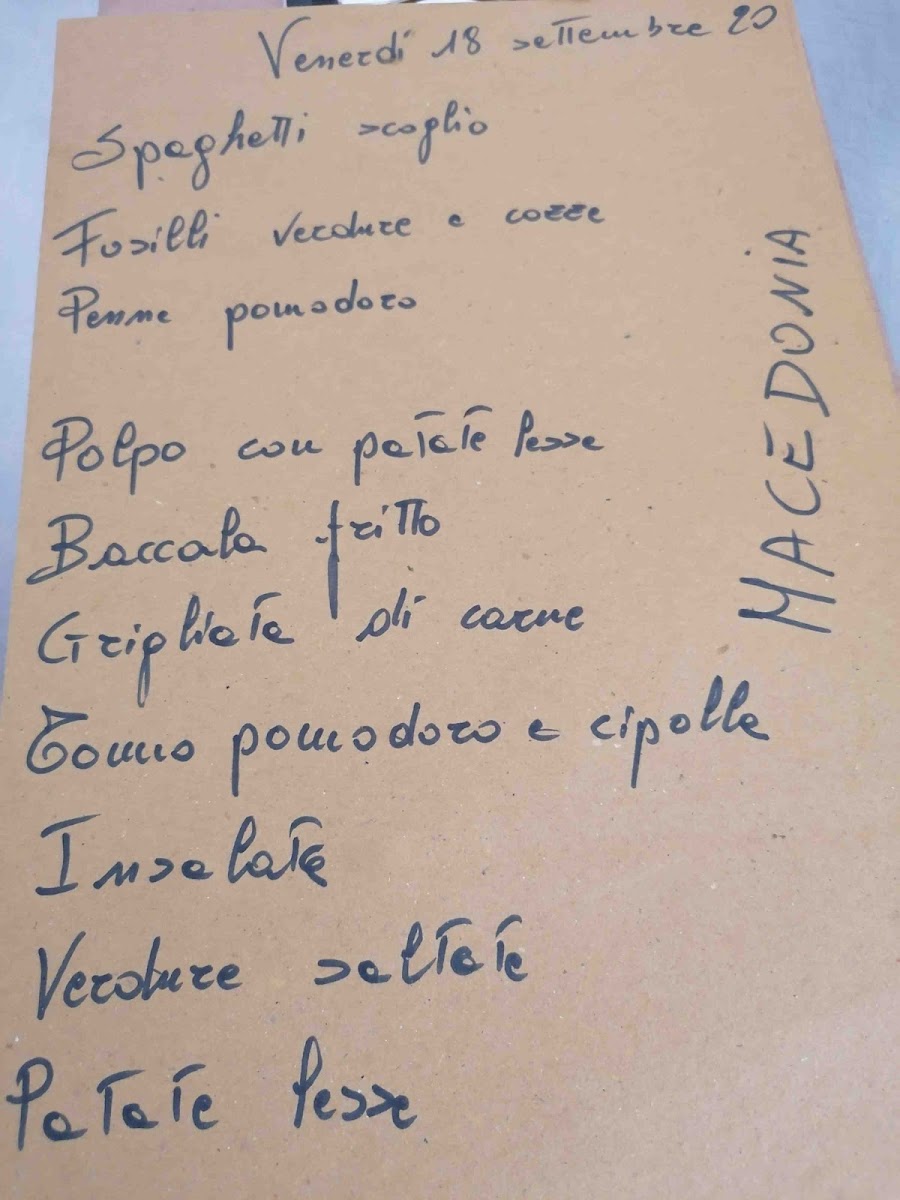 Venerdí 18 settembre 20
Spaghetti scoglio
Fusilli verdure e cozze
Penne pomodoro
Polpo con patate lesse
Baccala fritto
Grigliata di carne
Tonno pomodoro e cipolla
Insalata
Verdure saltate
Patate lesse
MACEDONIA